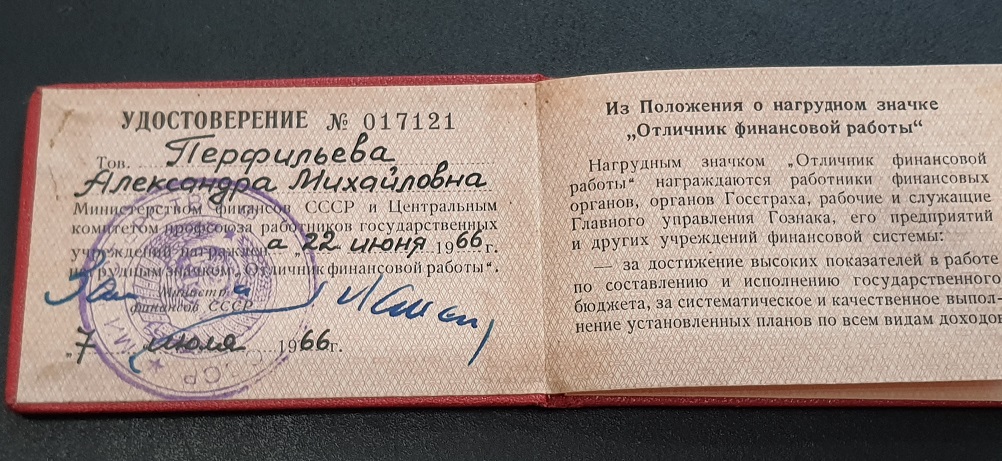 УДОСТОВЕРЕНИЕ № 017121
Тов. Перфильева
Александра Михайловна
Министерством финансов СССР и Центральным
комитетом профсоюза работников государственных
учреждений награжден а „22 июня 1966 г.
нагрудным значком „Отличник финансовой работы“.
Зам Министра
финансов СССР
„7 июля 1966 г.
Из Положения о нагрудном значке
„Отличник финансовой работы“
Нагрудным значком „Отличник финансовой
работы“ награждаются работники финансовых
органов, органов Госстраха, рабочие и служащие
Главного управления Гознака, его предприятий
и других учреждений финансовой системы:
— за достижение высоких показателей в работе
по составлению и исполнению государственного
бюджета, за систематическое и качественное выпол-
нение установленных планов по всем видам доходов